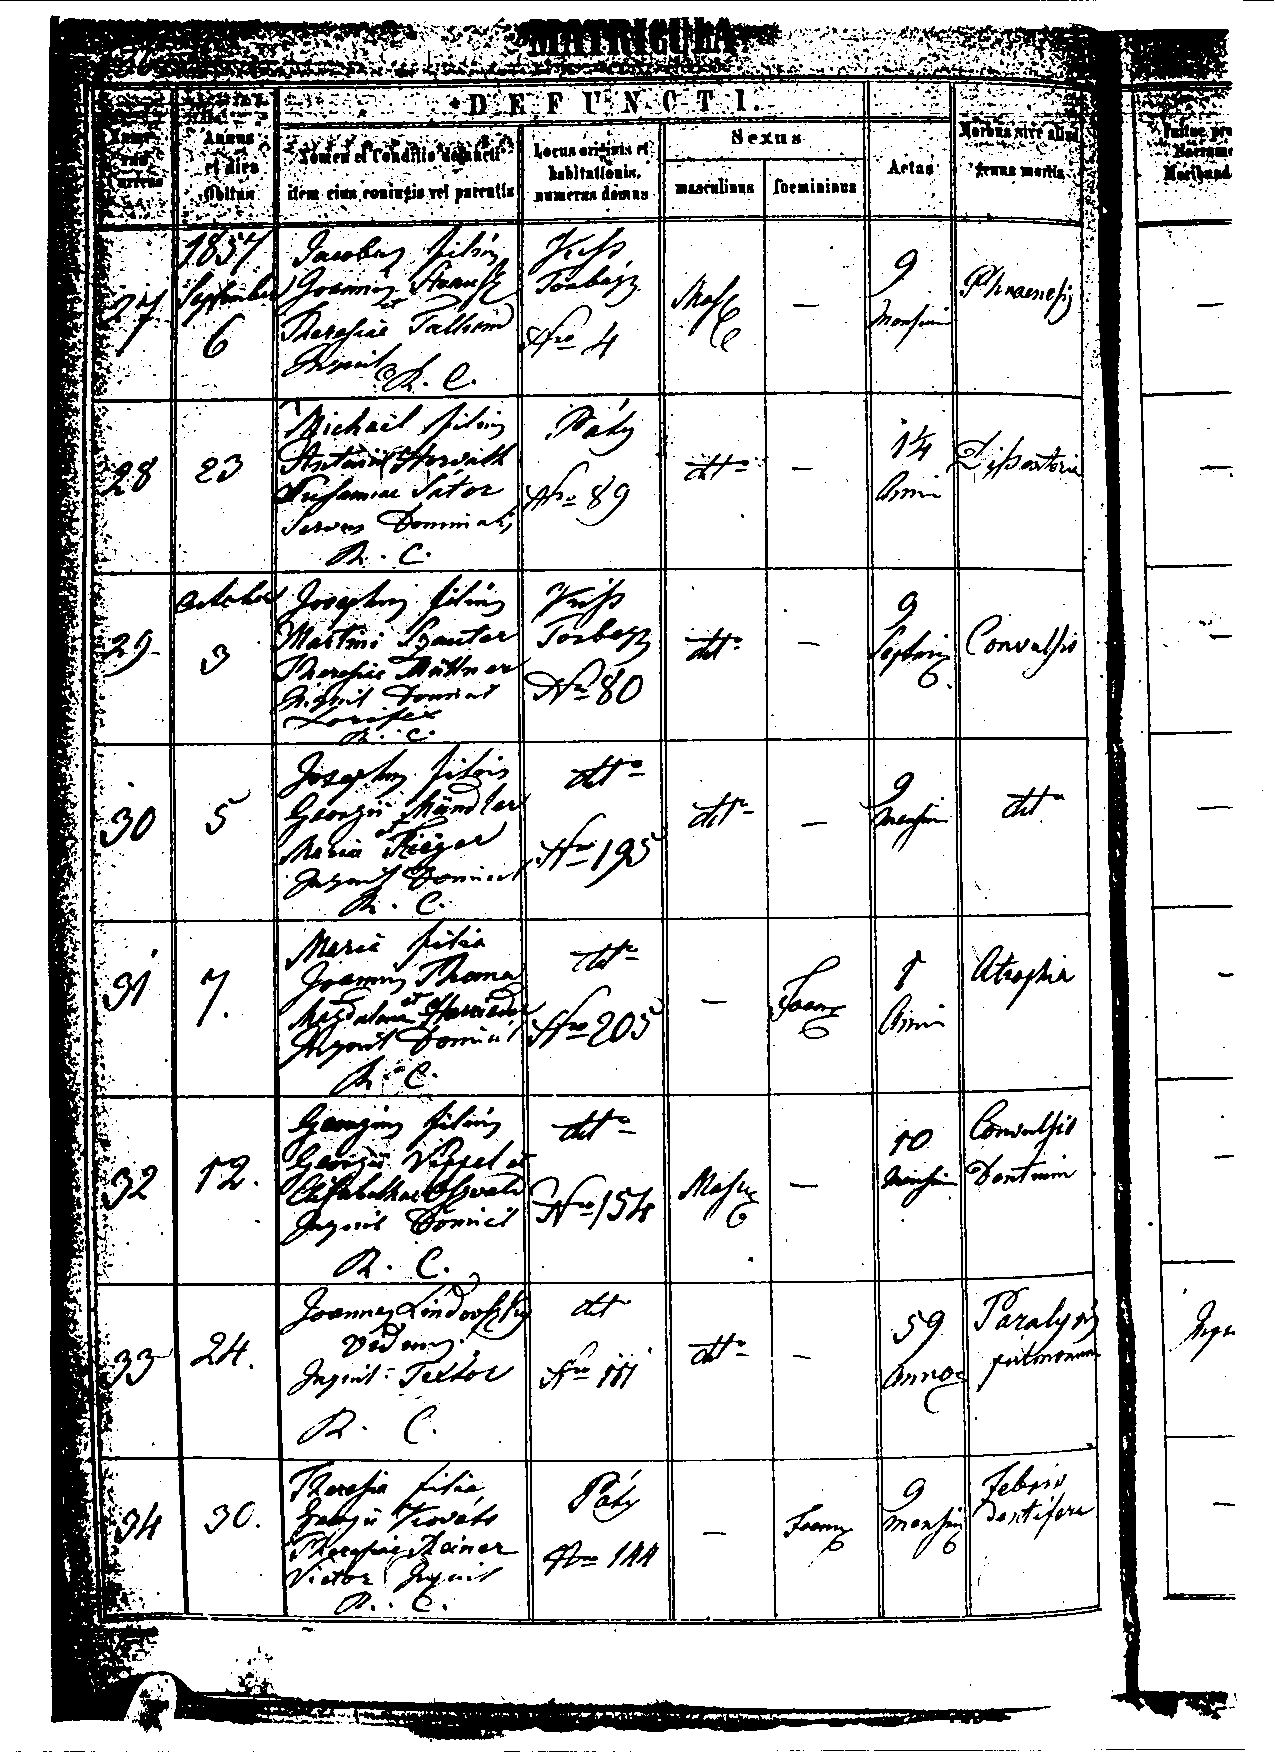 MATRICULA
DEFUNCTI.
Annus et dies Obitus
Nomen et Conditio defuncti item eius coniugis vel parentis
Locus originis et habitationis, numerus domus
Sexus
masculinus
foemininus
Aetas
Morbus sive aliud genus mortis
27
1857
September
6
Jacobus filius
Joannis
et
Theresiae
R. C.
Kiss
Torbágy
Nro 4
Masc
—
9
Mensium
Phraenesis
28
23
Michael filius
Antonii Horváth
Susannae Sátor
Servus Dominalis
R. C.
Páty
Nro 89
detto
—
14
Anni
29
October
3
Josephus filius
Martini Szauter
Theresiae Müttner
Inquil Dominal
R. C.
Kiss
Torbágy
Nro 80
detto
—
9
Convulsio
30
5
Josephus filius
Georgii Händler
et
Maria Rieger
Inquil Dominal
R. C.
detto
Nro 195
detto
—
9
Mensium
detto
31
7.
Maria filia
Joannis Thoma
et
Magdalena
Inquil Dominal
R. C.
detto
Nro 205
—
Foem
Anni
Atrophia
32
12.
Georgius filius
Georgii et
Elisabethae Oswald
Inquil Dominal
R. C.
detto
Nro 154
Masc
—
10
Mensium
Convulsio
Dentium
33
24.
Joannes Lindovszky
Viduus
Inquil: Textor
R. C.
detto
Nro 111
detto
—
59
Annor
Paralysis
pulmonum
34
30.
Theresia filia
Georgii Kováts
Theresiae Steiner
Victor Inquil
R. C.
Páty
Nro 144
—
Foem
9
mensium
Febris
Dentifera